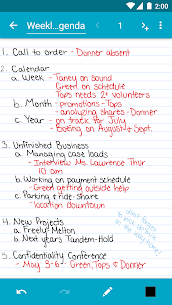 2:00
Weekl...genda
1
1. Call to order - Donner absent
2. Calendar
a. Week - Taney on sound
Greed on schedule
Tops needs 2+ volunteers
b. Month - promotions - Tops
- analyzing shares - Donner
c. Year - on track for July
- Boeing on August & Sept.
3. Unfinished Business
a. Managing case loads
- Interview Ms. Lawrence Thur
10 am
b. Working on payment schedule
- Greed getting outside help
c. Parking & ride-share
- location downtown
4. New Projects
a. Freeful Melton
b. Next years Tandem-Hold
5. Confidentiality Conference
- May 3-6: Green, Tops & Donner